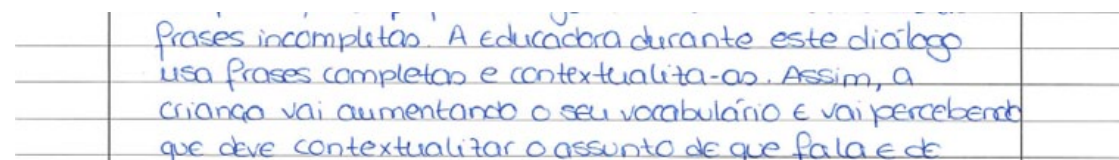 frases incompletas. A educadora durante este diálogo
usa frases completas e contextualiza-as. Assim, a
criança vai aumentando o seu vocabulário e vai percebendo
que deve contextualizar o assunto de que fala e de